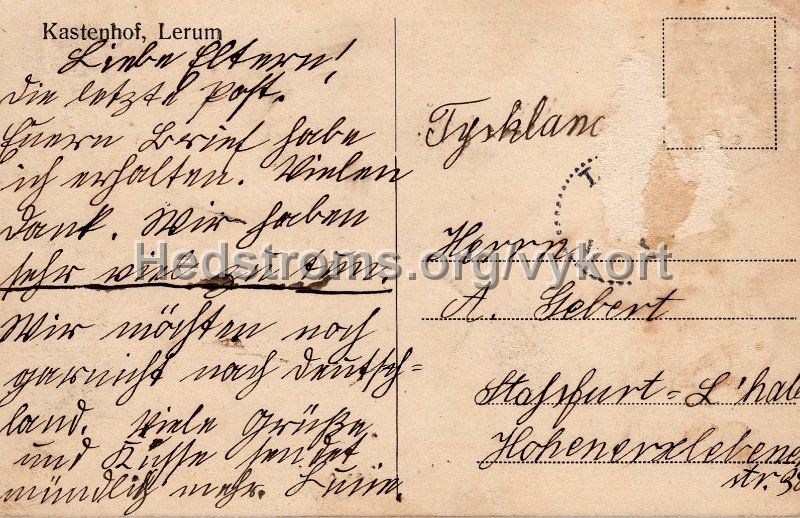 Kastenhof, Lerum
Liebe Eltern!
die letzte Post.
Euern Brief habe
ich erhalten. Vielen
Dank. Wir haben
sehr viel zu tun.
Wir möchten noch
garnicht nach Deutsch=
land. Viele Grüße
und Küsse sendet
mündlich mehr.
Tyskland
Herrn
A. Gebert
Stassfurt = L'hall
Hohenerxlebener
str. 98
Hedstroms.org/vykort